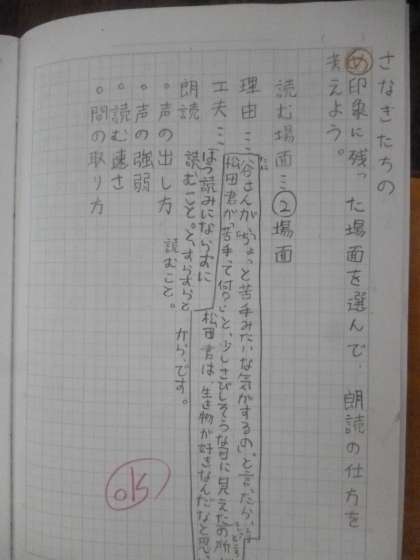 さなぎたちの
め 印象に残った場面を選んで、朗読の仕方を
考えよう。
読む場面…②場面
理由…谷さんが「ちょっと苦手みたいな気がするの」と言ったら、
松田君が「苦手って何が」と、少しさびしそうな目に見えたの所
松田君は、生き物が好きなんだなと思
から、です。
工夫…
ぼう読みにならずに
読むこと。と、すらすらと
読むこと。
朗読
・声の出し方
・声の強弱
・読む速さ
・間の取り方